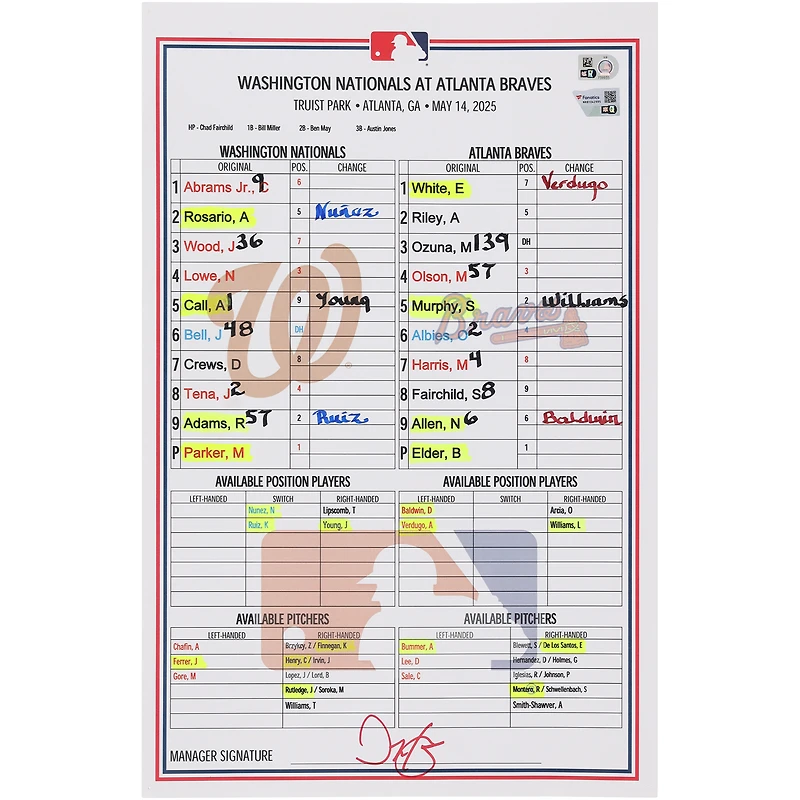 WASHINGTON NATIONALS AT ATLANTA BRAVES
TRUIST PARK • ATLANTA, GA • MAY 14, 2025
HP - Chad Fairchild 1B - Bill Miller 2B - Ben May 3B - Austin Jones
WASHINGTON NATIONALS ATLANTA BRAVES
ORIGINAL POS. CHANGE ORIGINAL POS. CHANGE
1 Abrams Jr., C 9 6 1 White, E 7 Verdugo
2 Rosario, A 5 Nuñez 2 Riley, A 5
3 Wood, J 36 7 3 Ozuna, M 139 DH
4 Lowe, N 3 4 Olson, M 57 3
5 Call, A 1 9 Young 5 Murphy, S 2 Williams
6 Bell, J 48 DH 6 Albies, O 2 4
7 Crews, D 8 7 Harris, M 4 8
8 Tena, J 2 4 8 Fairchild, S 8 9
9 Adams, R 57 2 Ruiz 9 Allen, N 6 6 Baldwin
P Parker, M 1 P Elder, B 1
Braves
AVAILABLE POSITION PLAYERS AVAILABLE POSITION PLAYERS
LEFT-HANDED SWITCH RIGHT-HANDED LEFT-HANDED SWITCH RIGHT-HANDED
Nunez, N Lipscomb, T Baldwin, D Arcia, O
Ruiz, K Young, J Verdugo, A Williams, L
AVAILABLE PITCHERS AVAILABLE PITCHERS
LEFT-HANDED RIGHT-HANDED LEFT-HANDED RIGHT-HANDED
Chafin, A Brzykcy, Z / Finnegan, K Bummer, A Blewett, S / De Los Santos, E
Ferrer, J Henry, C / Irvin, J Lee, D Hernandez, D / Holmes, G
Gore, M Lopez, J / Lord, B Sale, C Iglesias, R / Johnson, P
Rutledge, J / Soroka, M Montero, R / Schwellenbach, S
Williams, T Smith-Shawver, A
MANAGER SIGNATURE